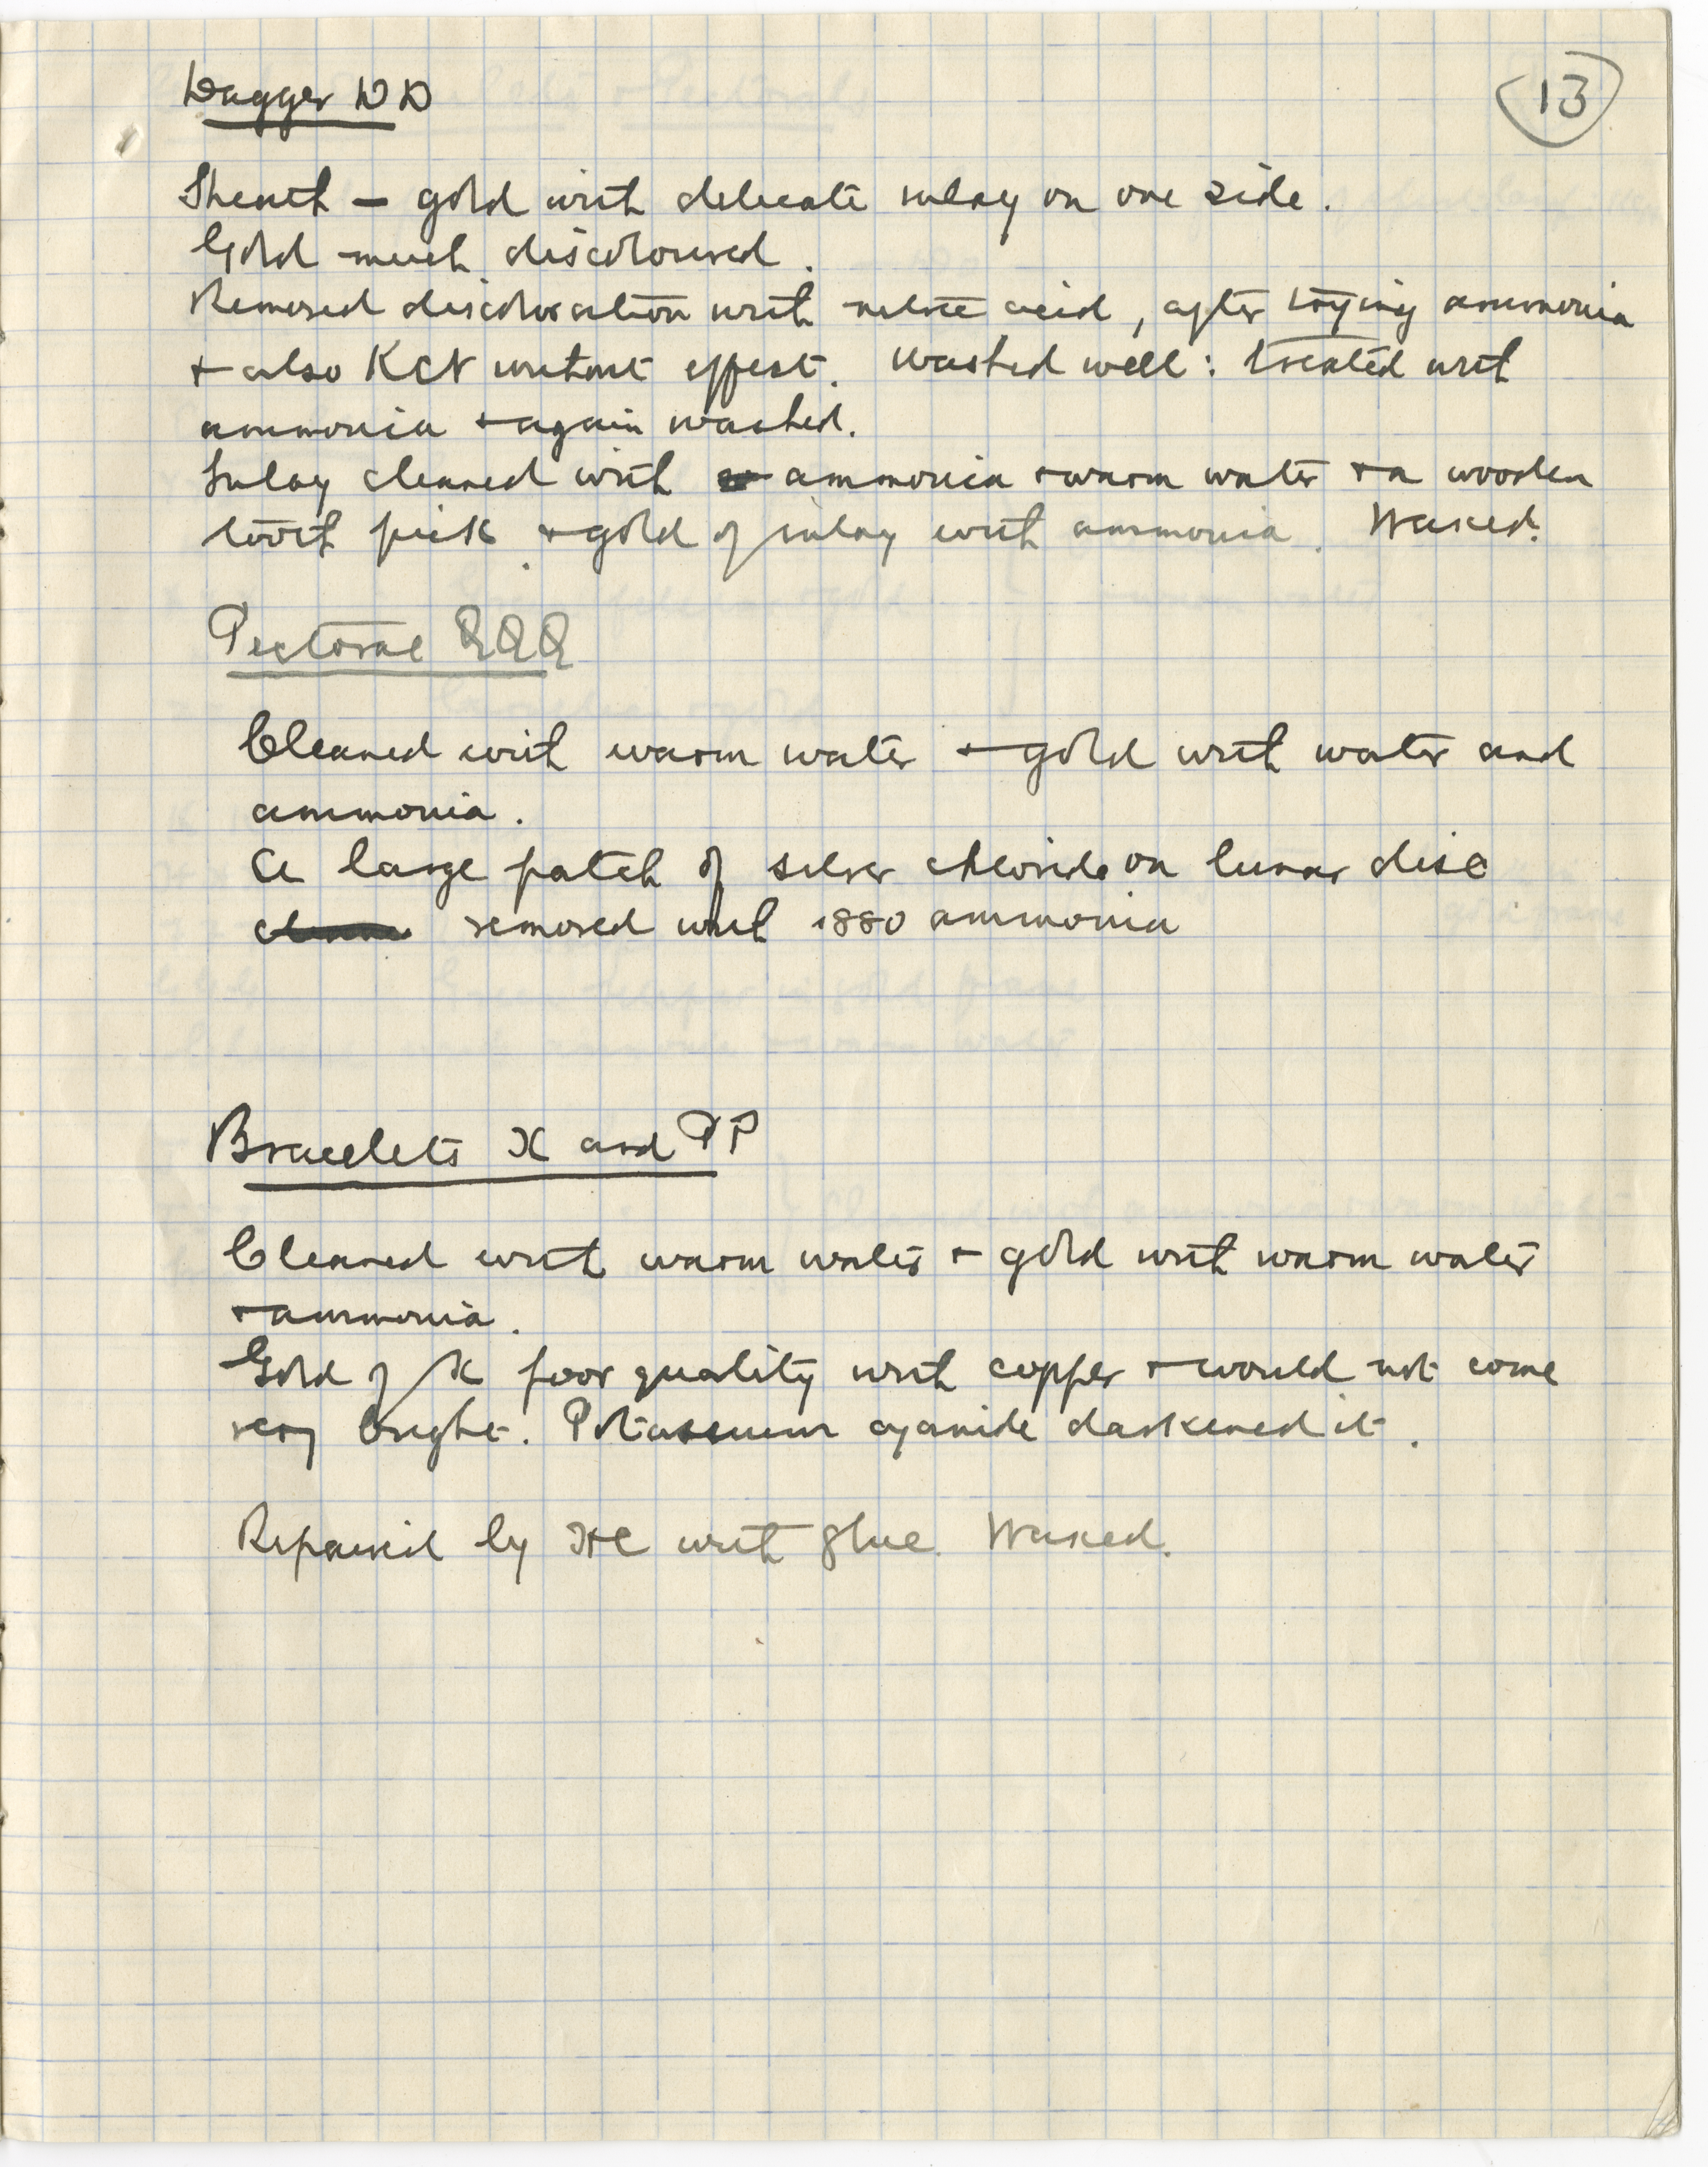 13
Dagger DD
Sheath — gold with delicate inlay on one side.
Gold much discoloured.
Removed discoloration with nitric acid, after trying ammonia
+ also KCN without effect. Washed well: treated with
ammonia + again washed.
Inlay cleaned with ammonia + warm water + a wooden
tooth pick + gold of inlay with ammonia. Waxed.
Pectoral QQQ
Cleaned with warm water + gold with water and
ammonia.
A large patch of silver chloride on lunar disc
removed with .880 ammonia
Bracelets X and PP
Cleaned with warm water + gold with warm water
+ ammonia.
Gold of X poor quality with copper + would not come
very bright. Potassium cyanide darkened it.
Repaired by HC with glue. Waxed.